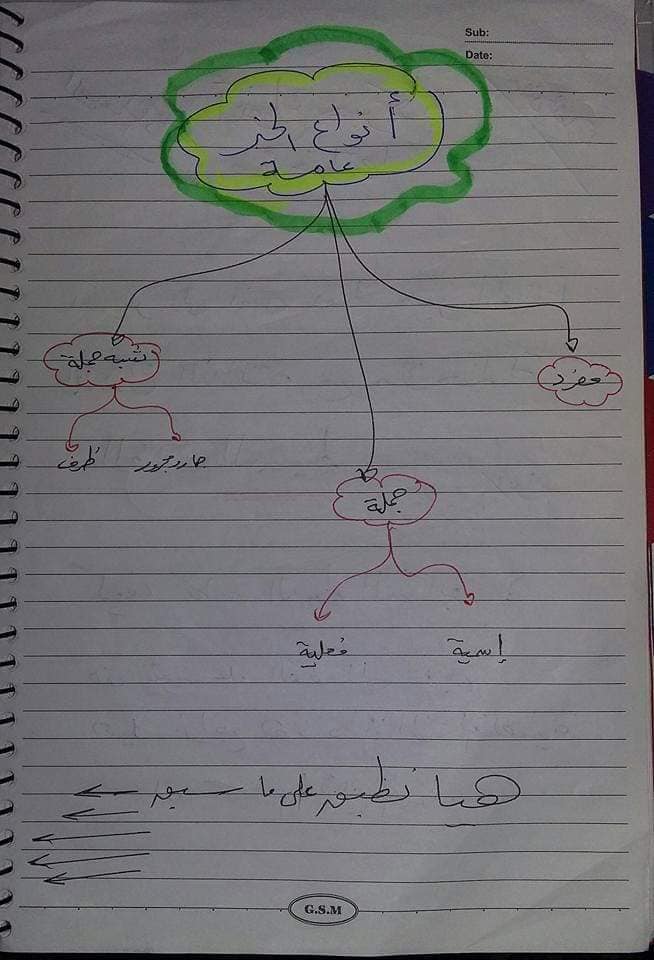 Sub:
Date:
أنواع الخبر
عامة
مفرد
شبه جملة
جار ومجرور
ظرف
جملة
إسمية
فعلية
هيا نطبق على ما سبق
G.S.M